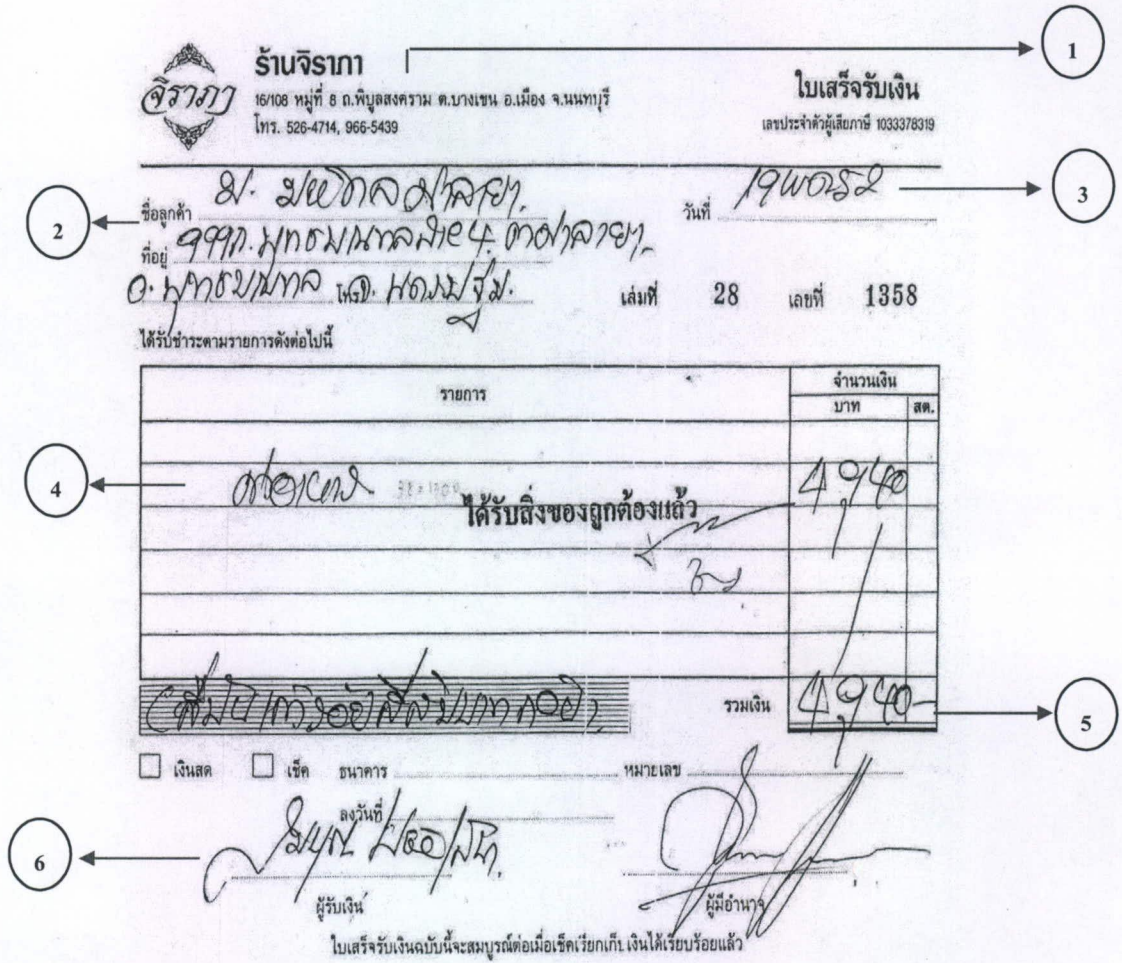 1
จิราภา
ร้านจิราภา
16/108 หมู่ที่ 8 ถ.พิบูลสงคราม ต.บางเขน อ.เมือง จ.นนทบุรี
โทร. 526-4714, 966-5439
ใบเสร็จรับเงิน
เลขประจำตัวผู้เสียภาษี 1033378319
2
ชื่อลูกค้า ม. มหิดล ศาลายา
วันที่ 19 พค 52
3
ที่อยู่ 999 ถ. พุทธมณฑลสาย 4 ต.ศาลายา
อ. พุทธมณฑล โทร. จ. นครปฐม.
เล่มที่ 28 เลขที่ 1358
ได้รับชำระตามรายการดังต่อไปนี้
รายการ
จำนวนเงิน
บาท
สต.
4
4,940
ได้รับสิ่งของถูกต้องแล้ว
(สี่พันเก้าร้อยสี่สิบบาทถ้วน)
รวมเงิน 4,940-
5
เงินสด เช็ค ธนาคาร หมายเลข
ลงวันที่
6
ผู้รับเงิน
ผู้มีอำนาจ
ใบเสร็จรับเงินฉบับนี้จะสมบูรณ์ต่อเมื่อเช็คเรียกเก็บเงินได้เรียบร้อยแล้ว